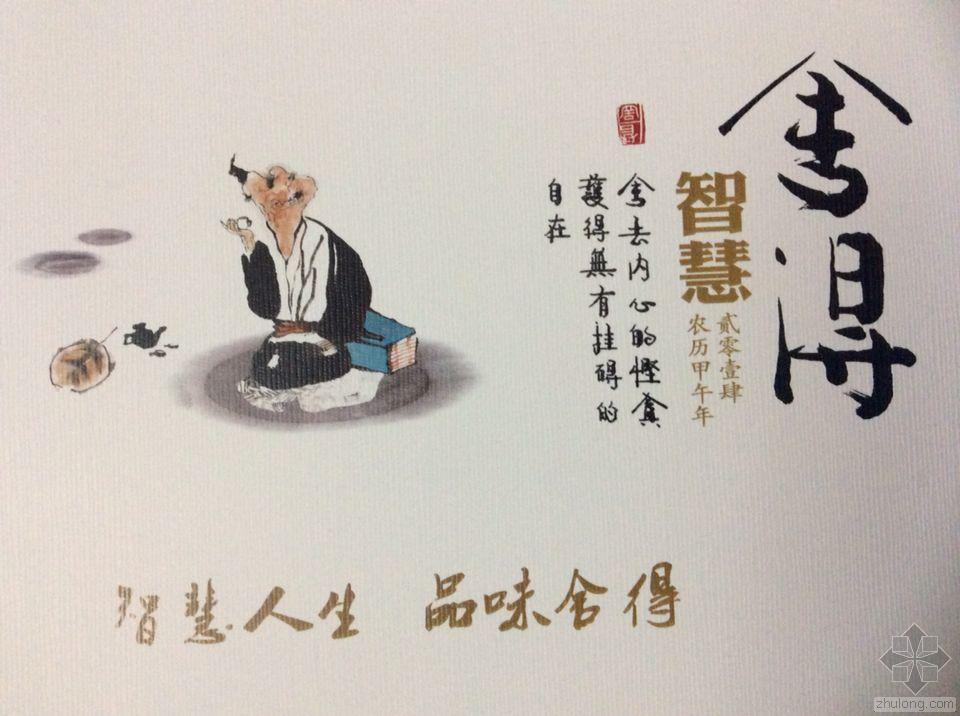 舍得
智慧
贰零壹肆
农历甲午年
舍去内心的悭贪
獲得無有挂碍的
自在
智慧人生 品味舍得
zhulong.com